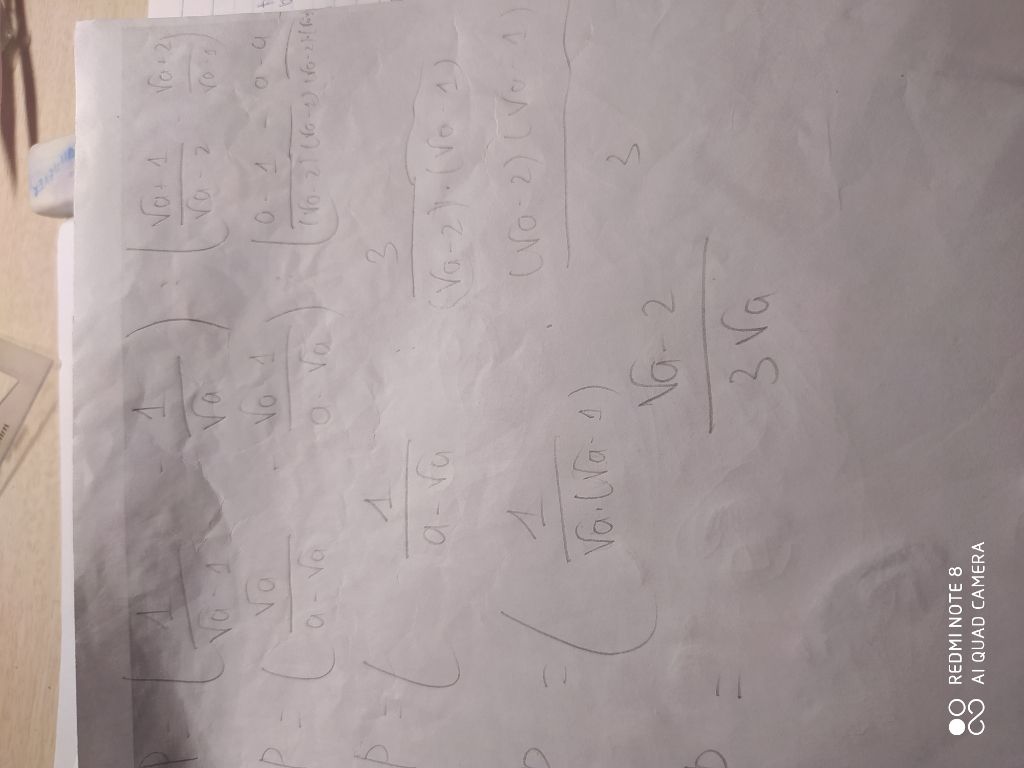 P = ( 1/(√a - 1) - 1/√a ) : ( (√a + 1)/(√a - 2) - (√a + 2)/(√a - 1) )
P = ( √a/(a - √a) - (√a - 1)/(a - √a) ) : ( (a - 1)/((√a - 2)(√a - 1)) - (a - 4)/((√a - 1)(√a - 2)) )
P = ( 1/(a - √a) 3/((√a - 2)·(√a - 1))
P = ( 1/(√a·(√a - 1)) (√a - 2)(√a - 1)/3
P = (√a - 2)/(3√a)
REDMI NOTE 8
AI QUAD CAMERA